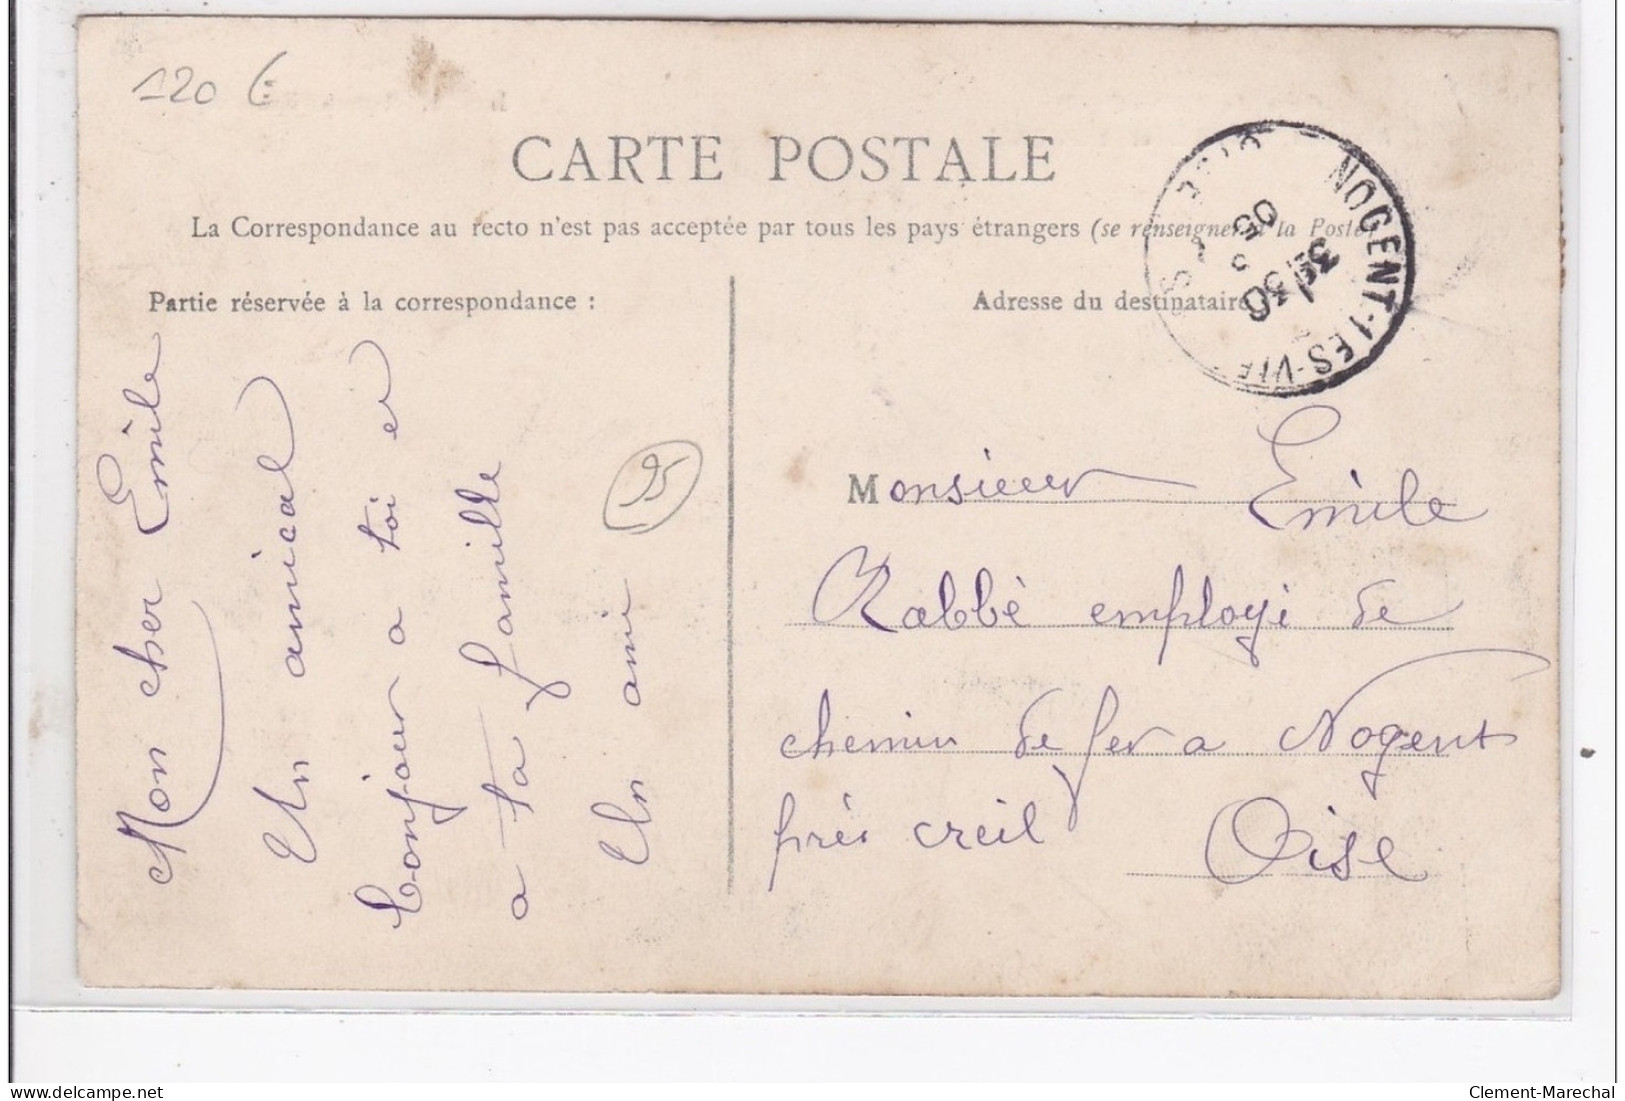 120 €
CARTE POSTALE
La Correspondance au recto n'est pas acceptée par tous les pays étrangers (se renseigner à la Poste)
Partie réservée à la correspondance :
Adresse du destinataire
NOGENT-LES-VIE
OISE
3
30
05
Mon cher Emile
Un amical
bonjour a toi er
a ta famille
Un ami
95
Monsieur Emile
Rabbè employi de
chemin de fer a Nogent
près creil Oise
delcampe.net
Clement-Marechal